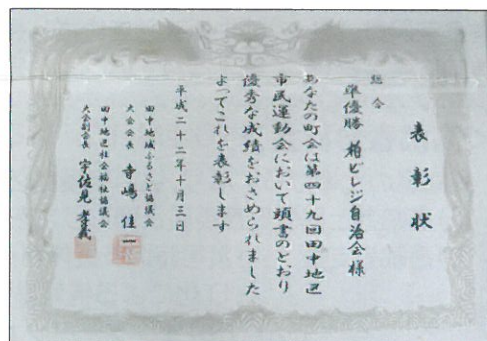 表彰状
総合
準優勝 柏ビレジ自治会様
あなたの町会は第四十九回田中地区
市民運動会において頭書のとおり
優秀な成績をおさめられました
よってこれを表彰します
平成二十二年十月三日
田中地域ふるさと協議会
大会会長 寺嶋佳一
田中地区社会福祉協議会
大会副会長 宇佐見孝義